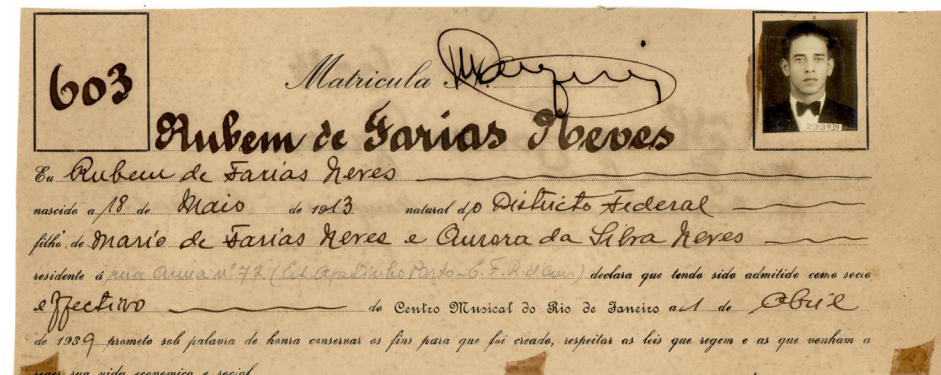 603
Matricula N.
Rubem de Farias Neves
Eu Rubem de Farias Neves
nascido a 18 de Maio de 1913 natural do Districto Federal
filho de Mario de Farias Neves e Aurora da Silva Neves
residente á rua Anna nº 72 declara que tendo sido admitido como socio
effectivo do Centro Musical do Rio de Janeiro a 1 de Abril
de 1939 prometo sob palavra de honra conservar os fins para que foi creado, respeitar as leis que regem e as que venham a
reger sua vida economica e social